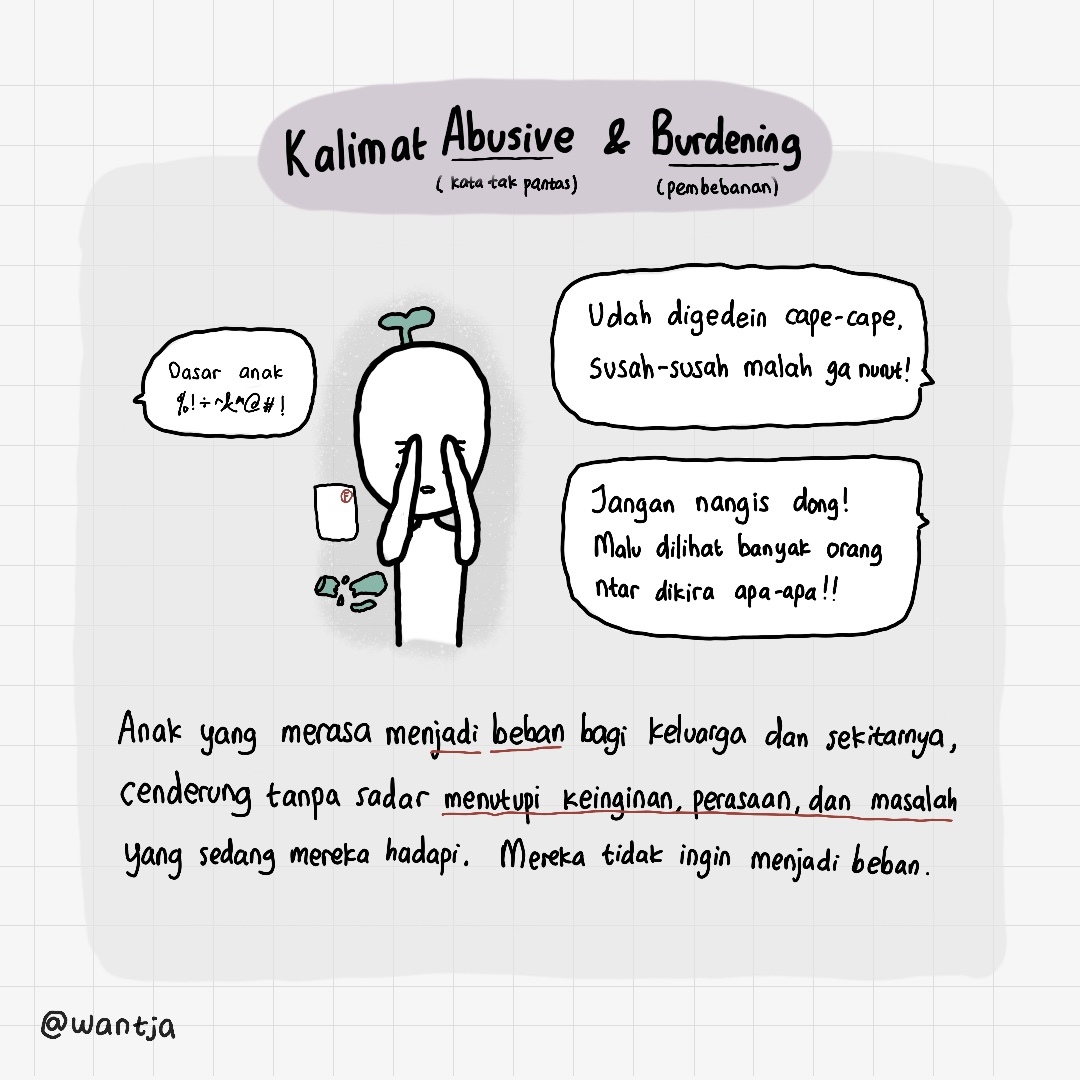 Kalimat Abusive & Burdening
(kata tak pantas) (pembebanan)
Dasar anak
%!÷^&*@#!
Udah digedein cape-cape,
Susah-susah malah ga nurut!
F
Jangan nangis dong!
Malu dilihat banyak orang
ntar dikira apa-apa!!
Anak yang merasa menjadi beban bagi keluarga dan sekitarnya,
cenderung tanpa sadar menutupi keinginan, perasaan, dan masalah
yang sedang mereka hadapi. Mereka tidak ingin menjadi beban.
@wantja